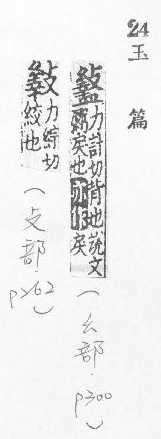 24
玉篇
盭
力計切背也說文
弼戾也亦作戾
(幺部.
P300)
力綜切
絞也
(攴部.
P262)